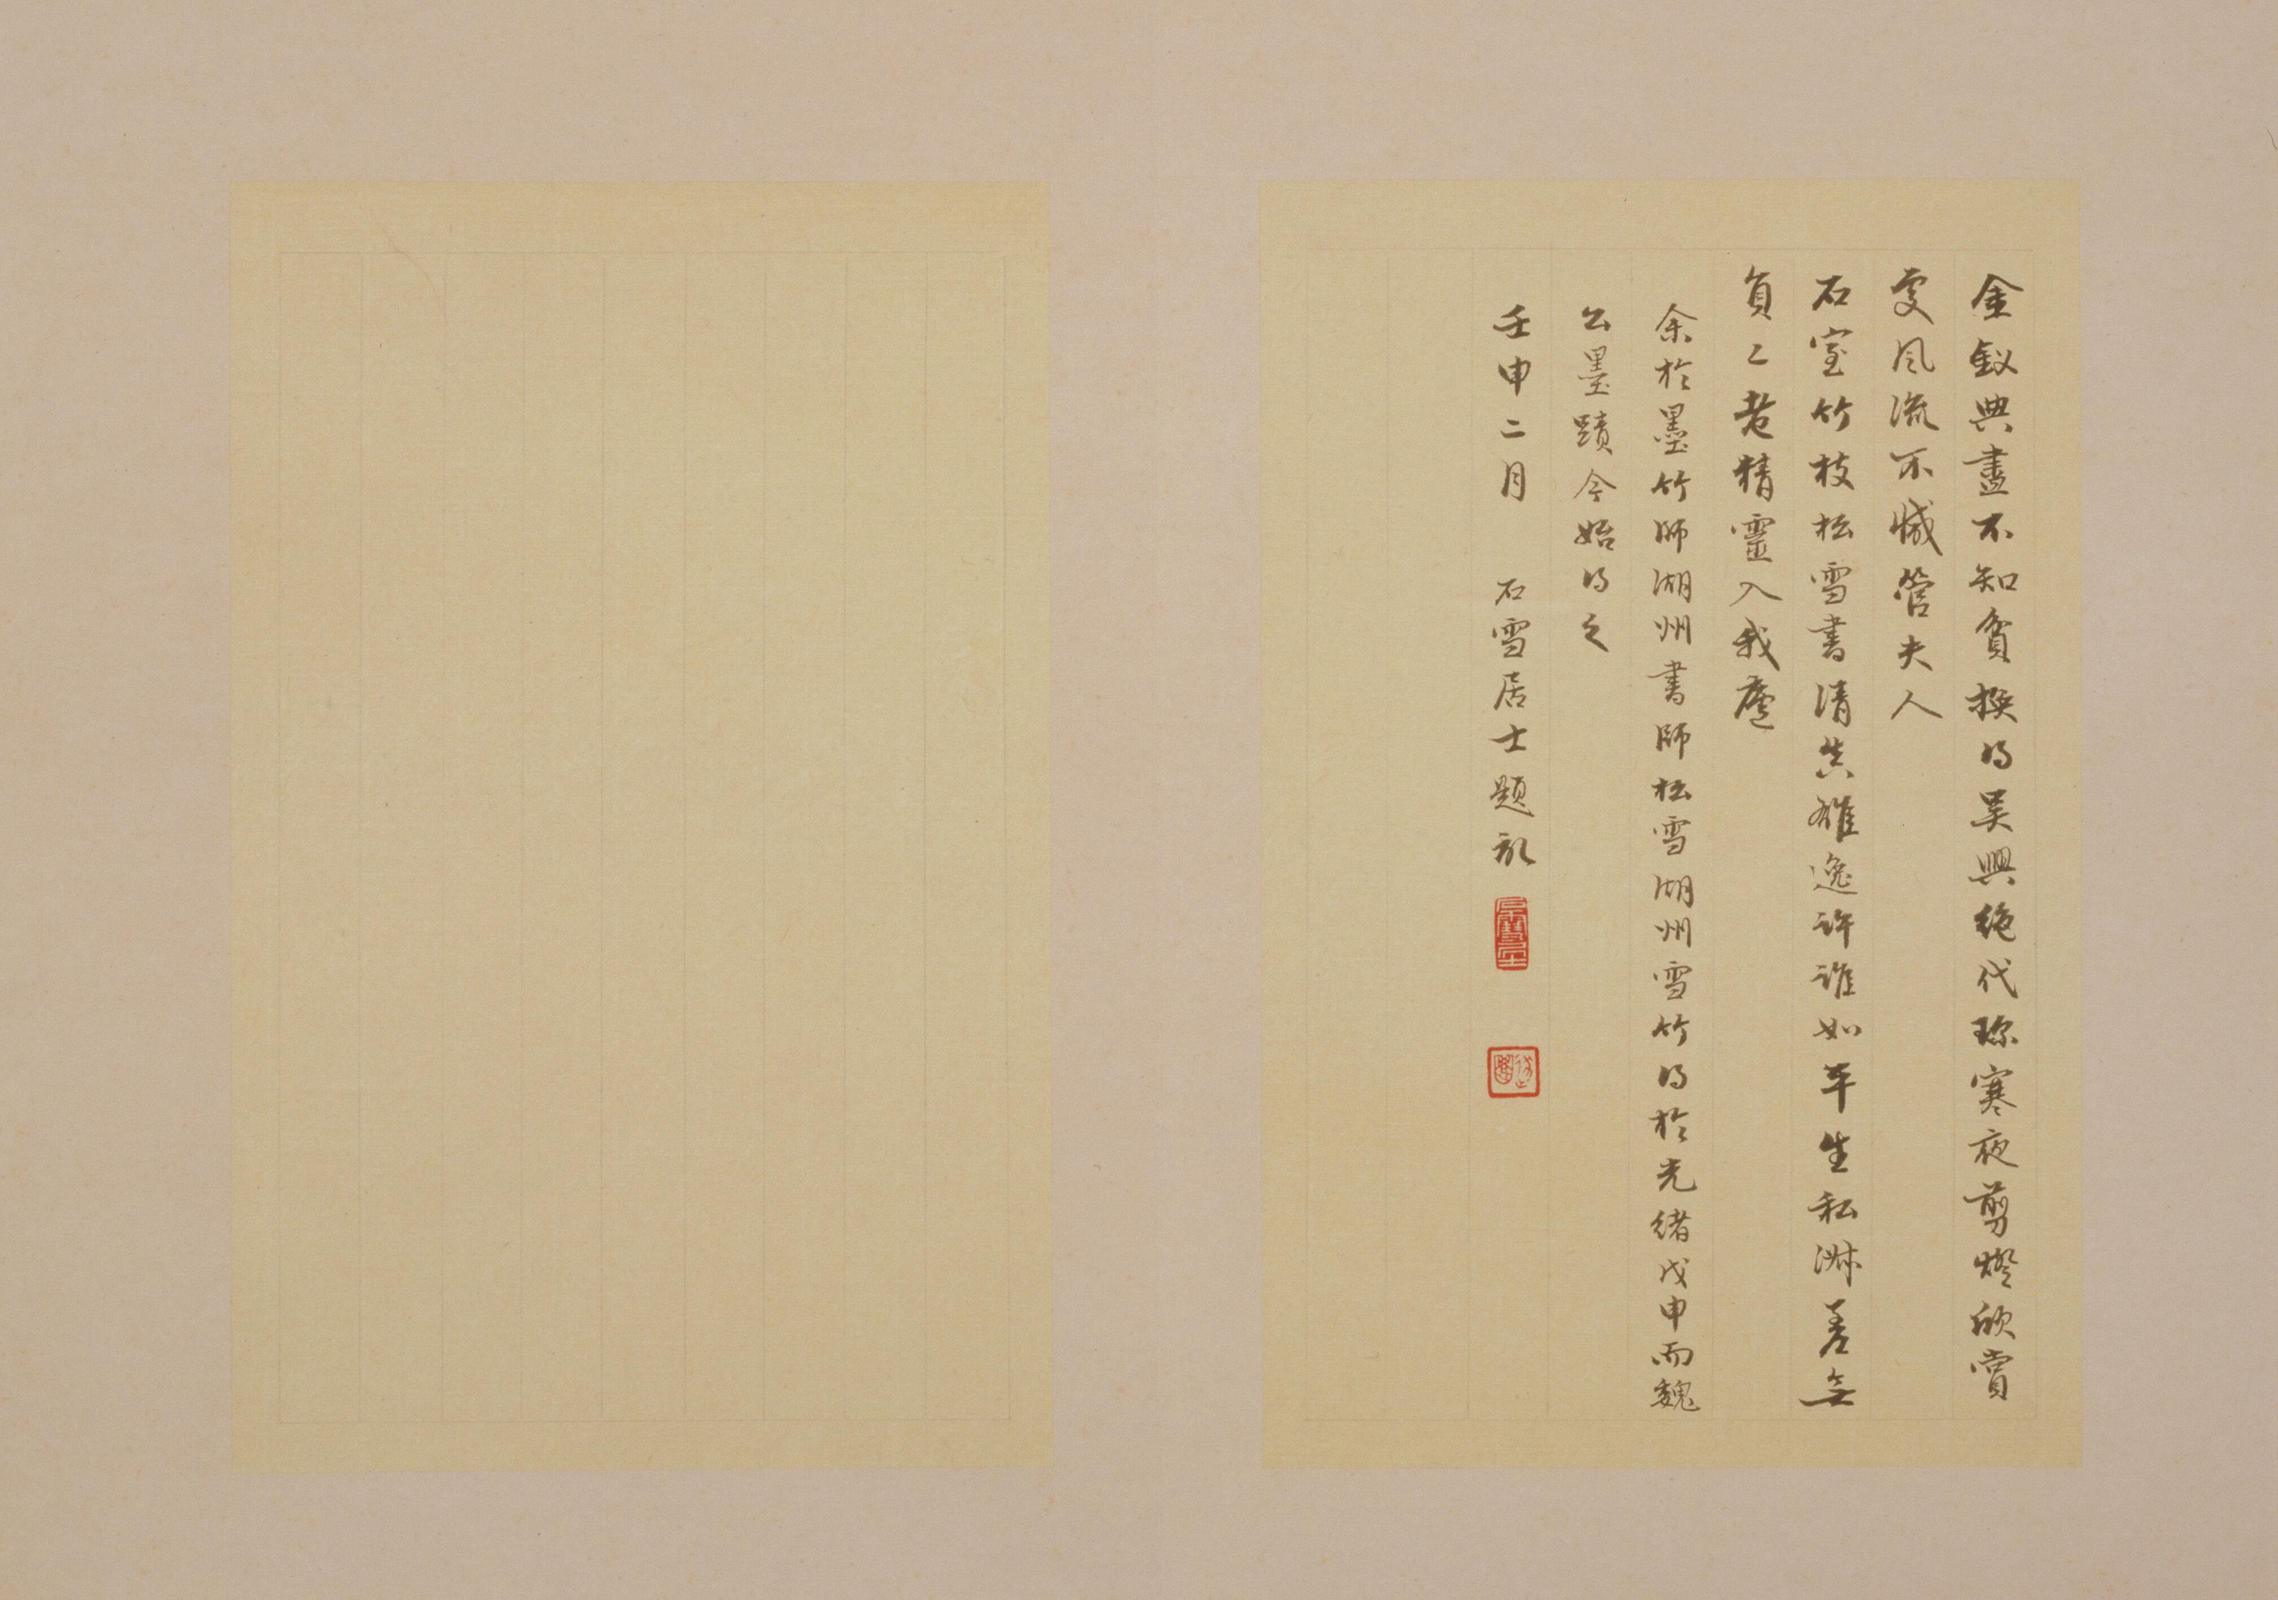 金釵典盡不知貧換得吳興絕代珍寒夜剪燈欣賞
處風流不慽管夫人
石室竹枝松雪書清真雄逸許誰如平生私淑差無
負二老精靈入我廬
余於墨竹師湖州書師松雪湖州雪竹得於光緒戊申而魏
公墨蹟今始得之
壬申二月 石雪居士題記
石雪居士